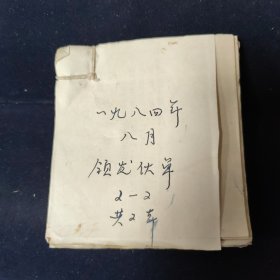 一九八四年
八月
领发伙单
2-2
共2本